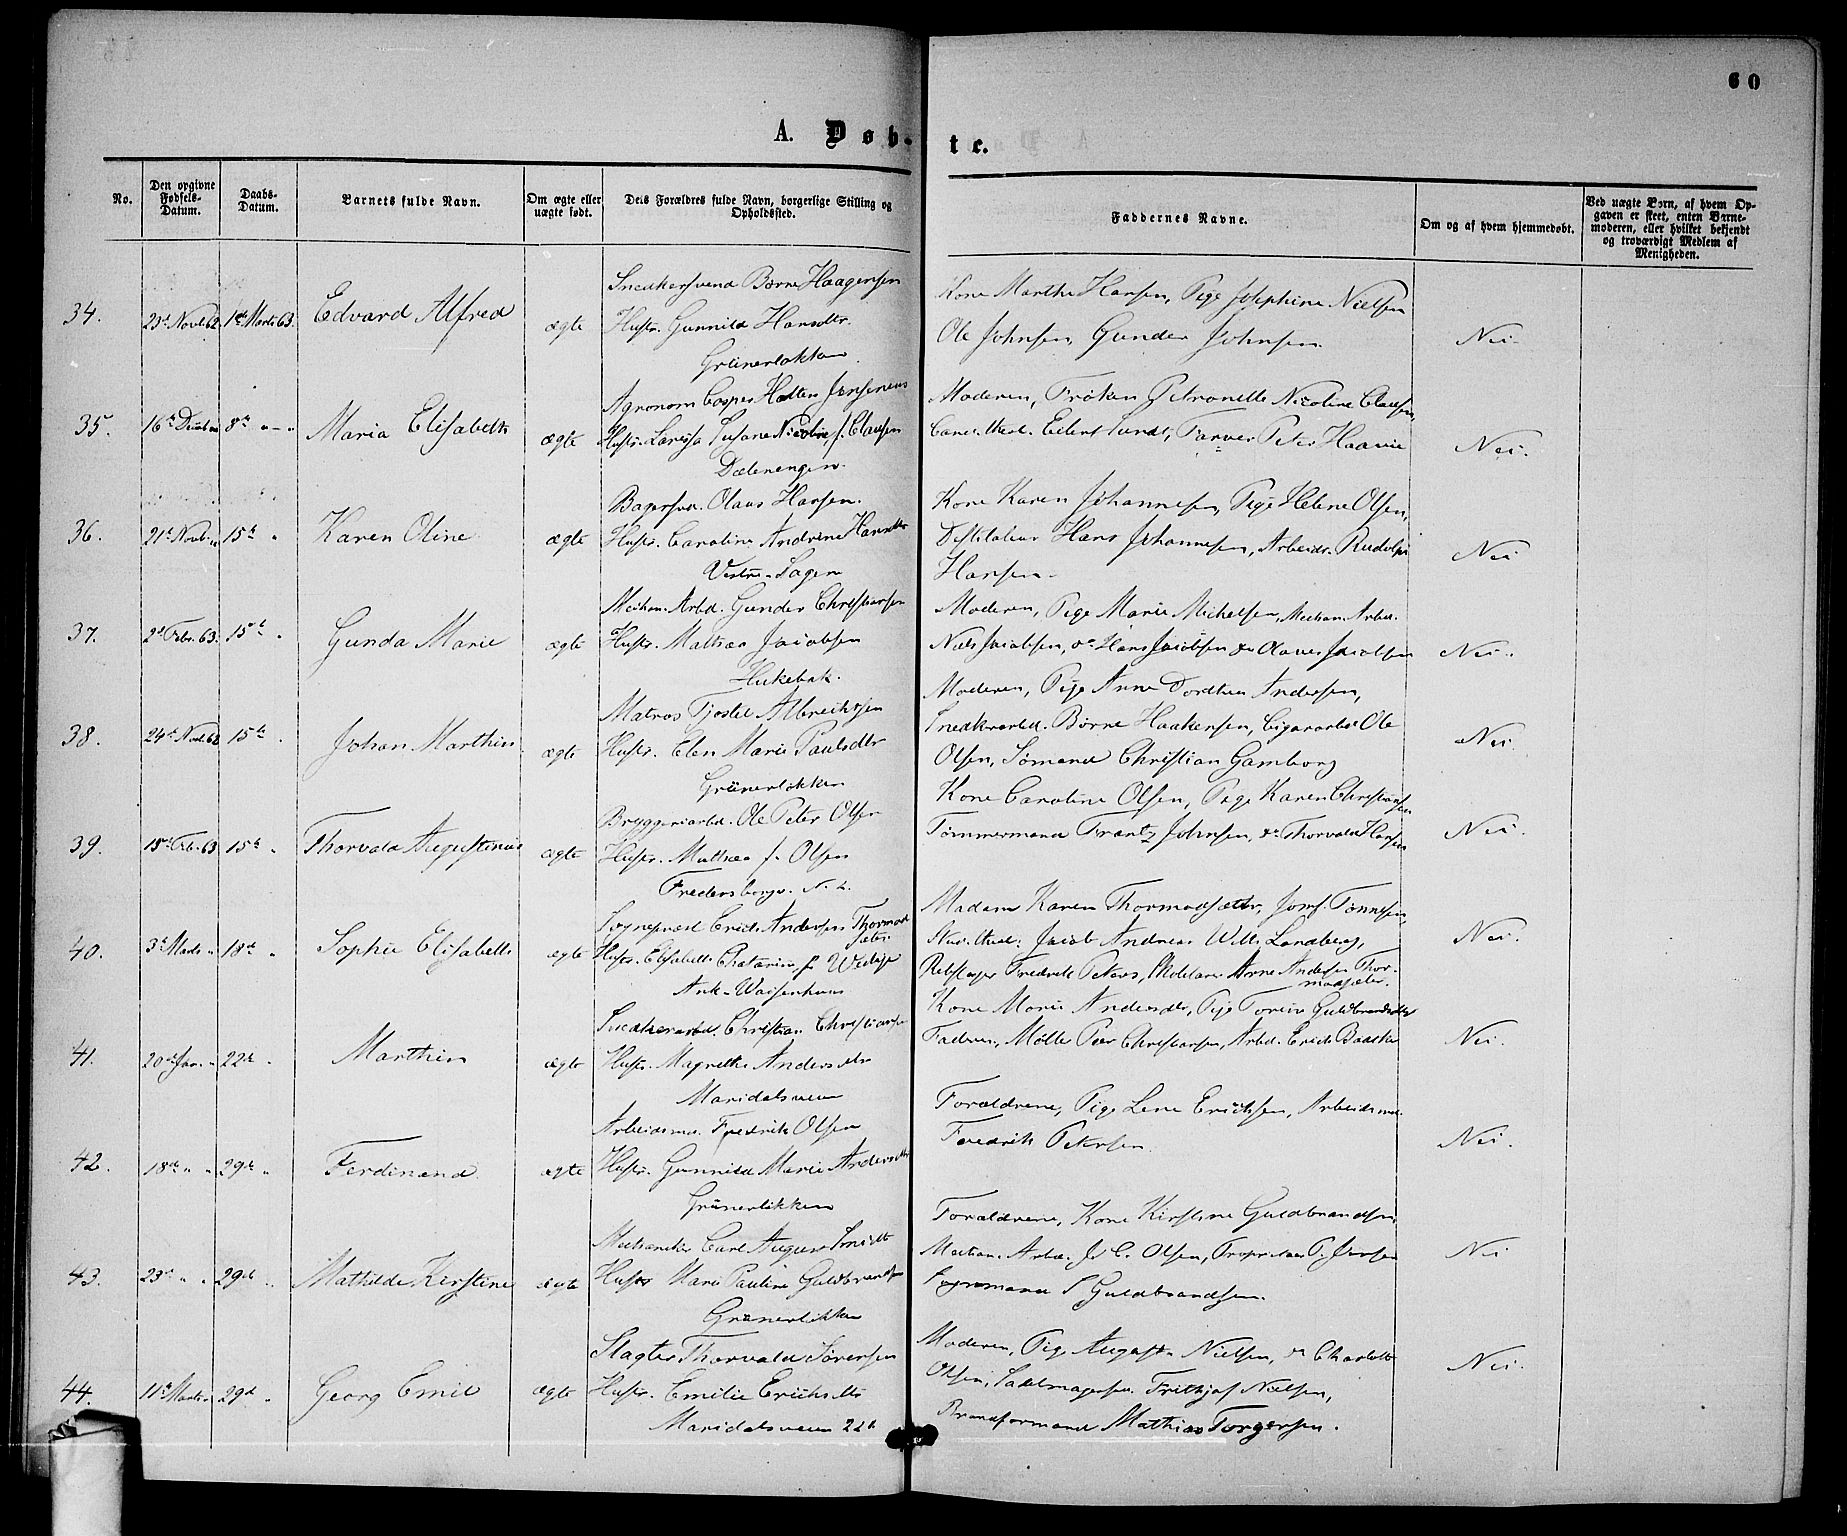 60
A. Døb- te.
No.
Den opgivne Fødsels-Datum.
Daabs-Datum.
Barnets fulde Navn.
Om ægte eller uægte født.
Dets Forældres fulde Navn, borgerlige Stilling og Opholdssted.
Faddernes Navne.
Om og af hvem hjemmedøbt.
Ved uægte Børn, af hvem Opgaven er skeet, enten Barnemoderen, eller hvilket bekjendt og troværdigt Medlem af Menigheden.
34. 23d Novb 62. 1ste Marts 63. Edvard Alfred ægte
Snedkersvend Børre Haagensen
Hustr. Gunnild Hansdtr.
Grünerløkken
Kone Marthe Hansen, Pige Josephine Nielsen
Ole Johnsen, Gunder Johnsen.
Nei.
35. 16de 8de Maria Elisabeth ægte
Agronom Casper Holten Jensenius
Hustr. Lovisa Susane Nicoline f. Clausen
Dælenengen.
Moderen, Frøken Petronelle Nicoline Clausen,
Cand. theol. Eilert Sundt, Farver Peter Haavie
Nei.
36. 21de Novbr. 15de Karen Oline ægte
Bagersvd. Olaus Hansen.
Hustr. Caroline Andrine Hansdtr
Vestre-Sagene
Kone Karen Johannesen, Pige Helene Olsen,
Destilateur Hans Johannesen, Arbeidr. Rudolph
Hansen.
Nei
37. 2d Febr. 63. 15de Gunda Marie ægte
Mechan. Arbd. Gunder Christiansen
Hustr. Mathea Jacobsen
Hukebak.
Moderen, Pige Marie Michelsen, Mechan. Arbd.
Niels Jacobsen, do Hans Jacobsen do Olaves Jacobsen
Nei.
38. 24de Nov 62 15de Johan Marthin ægte
Matros Tjostel Albrechtsen
Hustr. Elen Marie Paulsdtr
Grünerløkken
Moderen, Pige Anne Dorthea Andersen,
Snedkerarbd. Børre Haakensen, Cigararbd Ole
Olsen, Sømand Christian Gamborg
Nei.
39. 15de Feb. 63 15de Thorvald Augustinius ægte
Bryggeriarbd. Ole Peter Olsen
Hustr. Mathea f. Olsen
Fredensborgv. N. 2.
Kone Caroline Olsen, Pige Karen Christiansen
Tømmermand Frantz Johnsen, do Thorvald Hansen
Nei.
40. 3de Marts 18de Sophie Elisabeth ægte
Sognepræst Erick Andersen Thormodsæter
Hustr. Elisabeth Catarine f.
Ank-Waisenhuus
Madam Karen Thormodsæter, Jomf. Tønnesen,
Stud. theol. Jacob Andreas Wille Landberg,
Rebslager Fredrik Peters, Skolelærer Arne Andersen Thormodsæter.
Nei.
41. 20de Jan. 22de Marthin ægte
Snedkerarbd. Christian Christiansen
Hustr. Magrethe Andersdtr
Maridalsveien
Kone Marie Andersdtr, Pige Torine Guldbrandsdtr
Faderen, Møller Peer Christiansen, Arbd. Erick Baasken
Nei.
42. 18de 29de Ferdinand. ægte
Arbeidsmd. Fredrik Olsen
Hustr. Gunnild Marie Andersdtr
Grünerløkken
Forældrene, Pige Lene Ericksen, Arbeidsmd.
Fredrik Petersen.
Nei.
43. 23de 29de Mathilde Kirstine ægte
Mechaniker Carl August Smidt
Hustr Marie Pauline Guldbrandsen
Grünerløkken
Forældrene, Kone Kirstine Guldbrandsen,
Mechan. Arbd. J. C. Olsen, Proprietær P. Jensen
S Guldbrandsen.
Nei
44. 11te Marts 29d Georg Emil ægte
Slagter Thorvald Sørensen
Hustr. Emilie Ericksdtr
Maridalsveien 22b
Moderen, Pige Augusta Nielsen, do Charlotte
Olsen, Sadelmagersv. Frithjof Nielsen,
Brandformand Mathias Torgersen.
Nei.